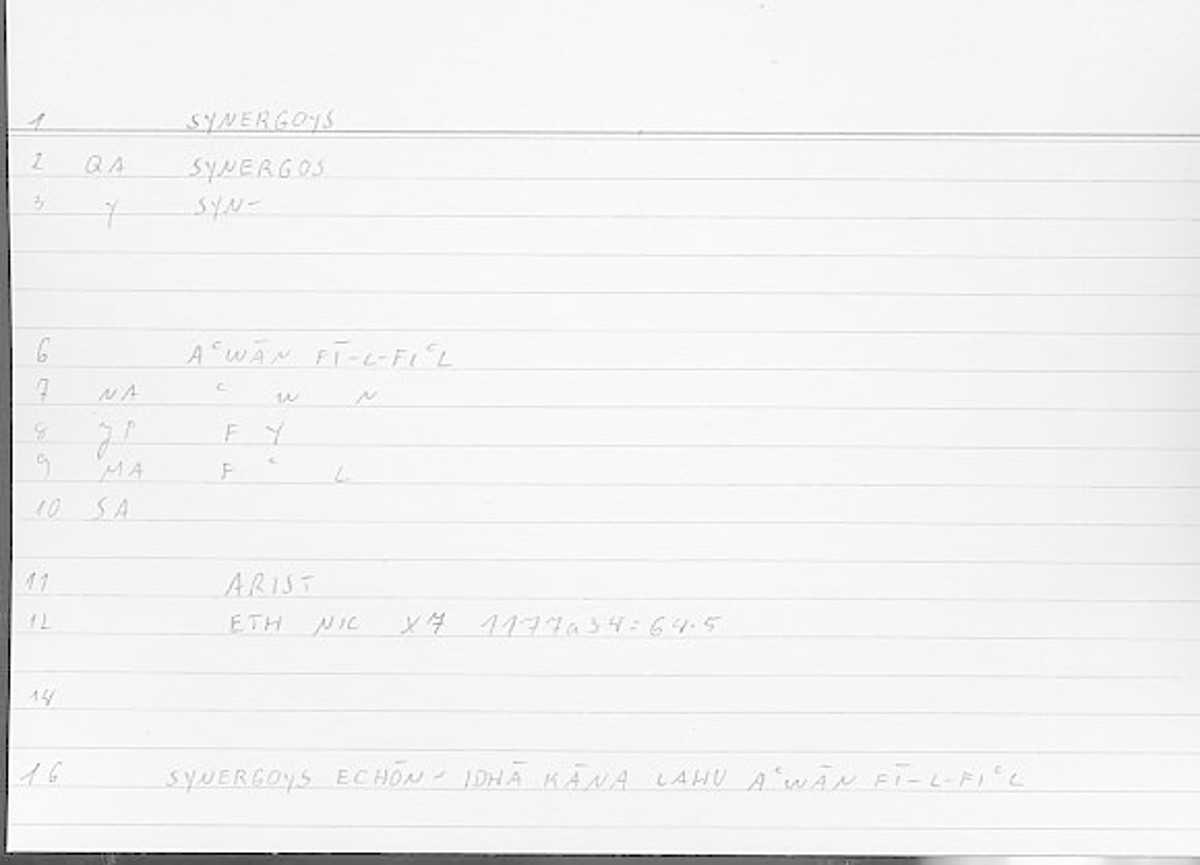 1 SYNERGOYS
2 QA SYNERGOS
3 Y SYN-
6 AʿWĀN FĪ-L-FIʿL
7 NA ʿ W N
8 JP F Y
9 MA F ʿ L
10 SA
11 ARIST
12 ETH NIC X7 1177a34:64.5
14
16 SYNERGOYS ECHŌN - IDHĀ KĀNA LAHU AʿWĀN FĪ-L-FIʿL